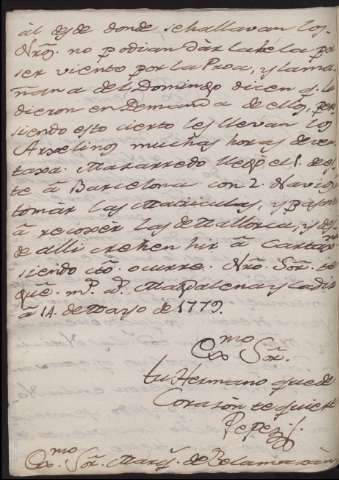 al de donde se hallavan los
Nros. no podian dar la vela por
ser viento por la Proa, y la ma
ñana del Domingo dicen q. la
dieron en Demanda de ellos, pero
siendo esto cierto les llevan los
muchas horas de ven
taxa. Mazarredo llegó el 1. de es
te à Barcelona con 2. Navios
tomár las Matriculas, y pasan
à recoxér las de Mallorca, y des
de alli crehen hir à Cartag.
siendo q.to ocurre. Nro. Sor. te
gue. m.s a.s Magdalena y Cadiz
à 14 de Mayo de 1779.
Exmo Sor.
tu Hermano que de
Corazòn te quiere
Pepe
Exmo. Sor. Marq.s de Belamazán